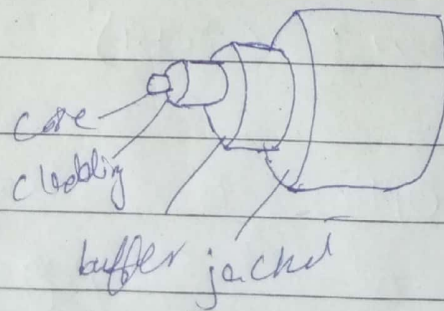 core
cladding
buffer jacket